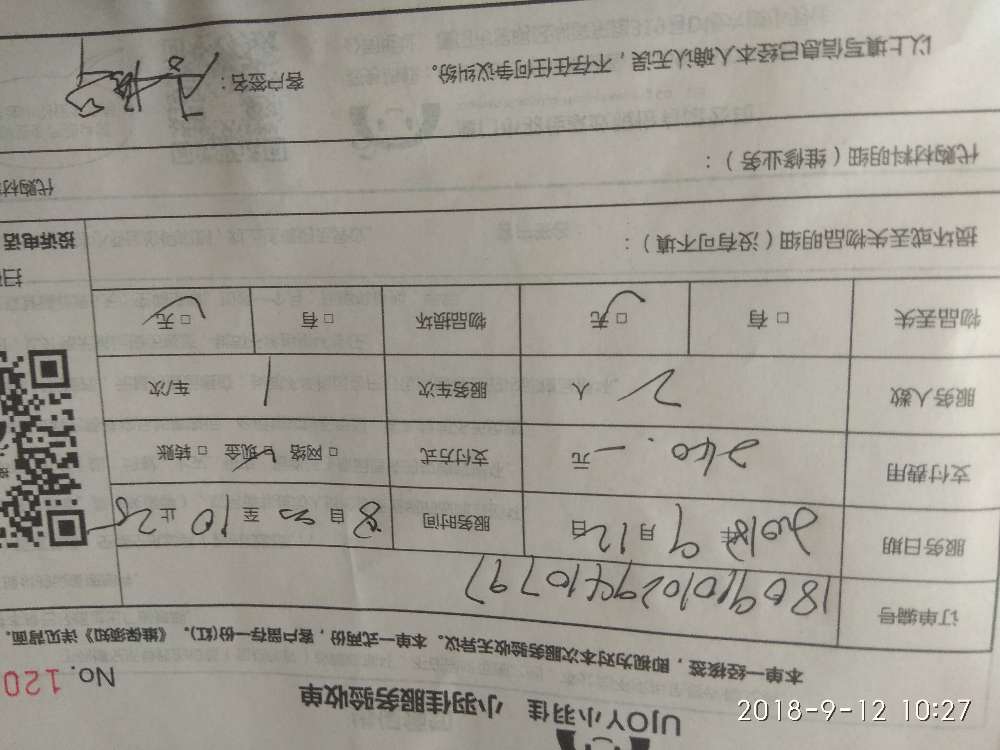 UJOY小羽佳 小羽佳服务验收单
No. 120
本单一经接签，即视为对本次服务验收无异议。本单一式两份，客户留存一份(红)。《维保须知》详见背面。
订单编号
服务日期 2018年9月12日 服务时间 8自 至10止
支付费用 240.一元 支付方式 □网络 □现金 □转账
服务人数 2人 服务车次 1 车/次
物品丢失 □有 □无 物品损坏 □有 □无
损坏或丢失物品明细（没有可不填）：
投诉电话
代购材料明细（维修业务）：
代购材
以上填写信息已经本人确认无误，不存在任何争议纠纷。 客户签名：
2018-9-12 10:27